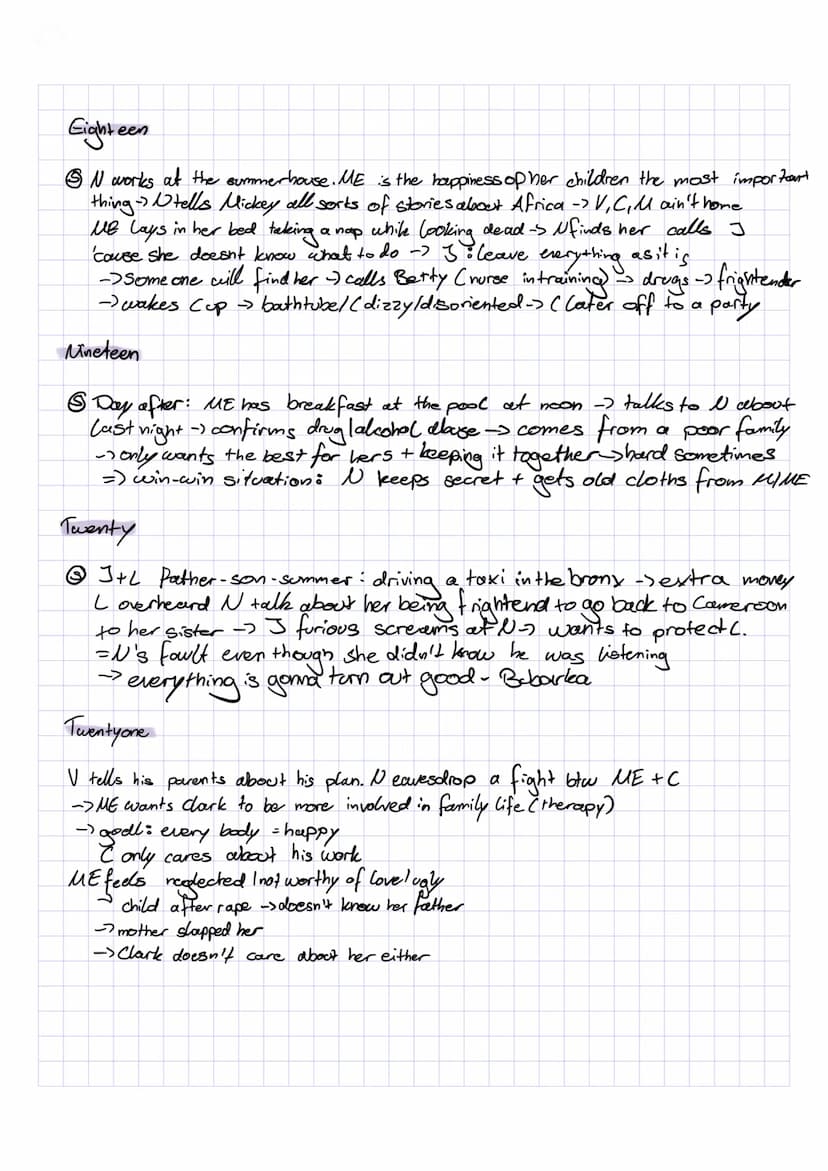 Eighteen
Ⓢ N works at the summerhouse. ME is the happiness of her children the most important
thing -> N tells Mickey all sorts of stories about Africa -> V, C, M ain't home
ME lays in her bed taking a nap while looking dead -> N finds her calls J
'cause she doesnt know what to do -> J: leave everything as it is
-> Someone will find her -> calls Betty (nurse in training) -> drugs -> frightender
-> wakes C up -> bathtube / C dizzy/disoriented -> C later off to a party
Nineteen
Ⓢ Day after: ME has breakfast at the pool at noon -> talks to N about
last night -> confirms drug/alcohol abuse -> comes from a poor family
-> only wants the best for hers + keeping it together -> hard sometimes
=> win-win situation: N keeps secret + gets old cloths from M/ME
Twenty
Ⓢ J+L Father-son-summer: driving a taxi in the bronx -> extra money
L overheard N talk about her being frightend to go back to Cameroon
to her sister -> J furious screams at N -> wants to protect L.
= N's fault even though she didn't know he was listening
-> everything is gonna turn out good - Bubakar
Twentyone
V tells his parents about his plan. N eavesdrop a fight btw ME + C
-> ME wants Clark to be more involved in family life (therapy)
-> goal: every body = happy
C only cares about his work
ME feels neglected / not worthy of love / ugly
-> child after rape -> doesn't know her father
-> mother slapped her
-> Clark doesn't care about her either